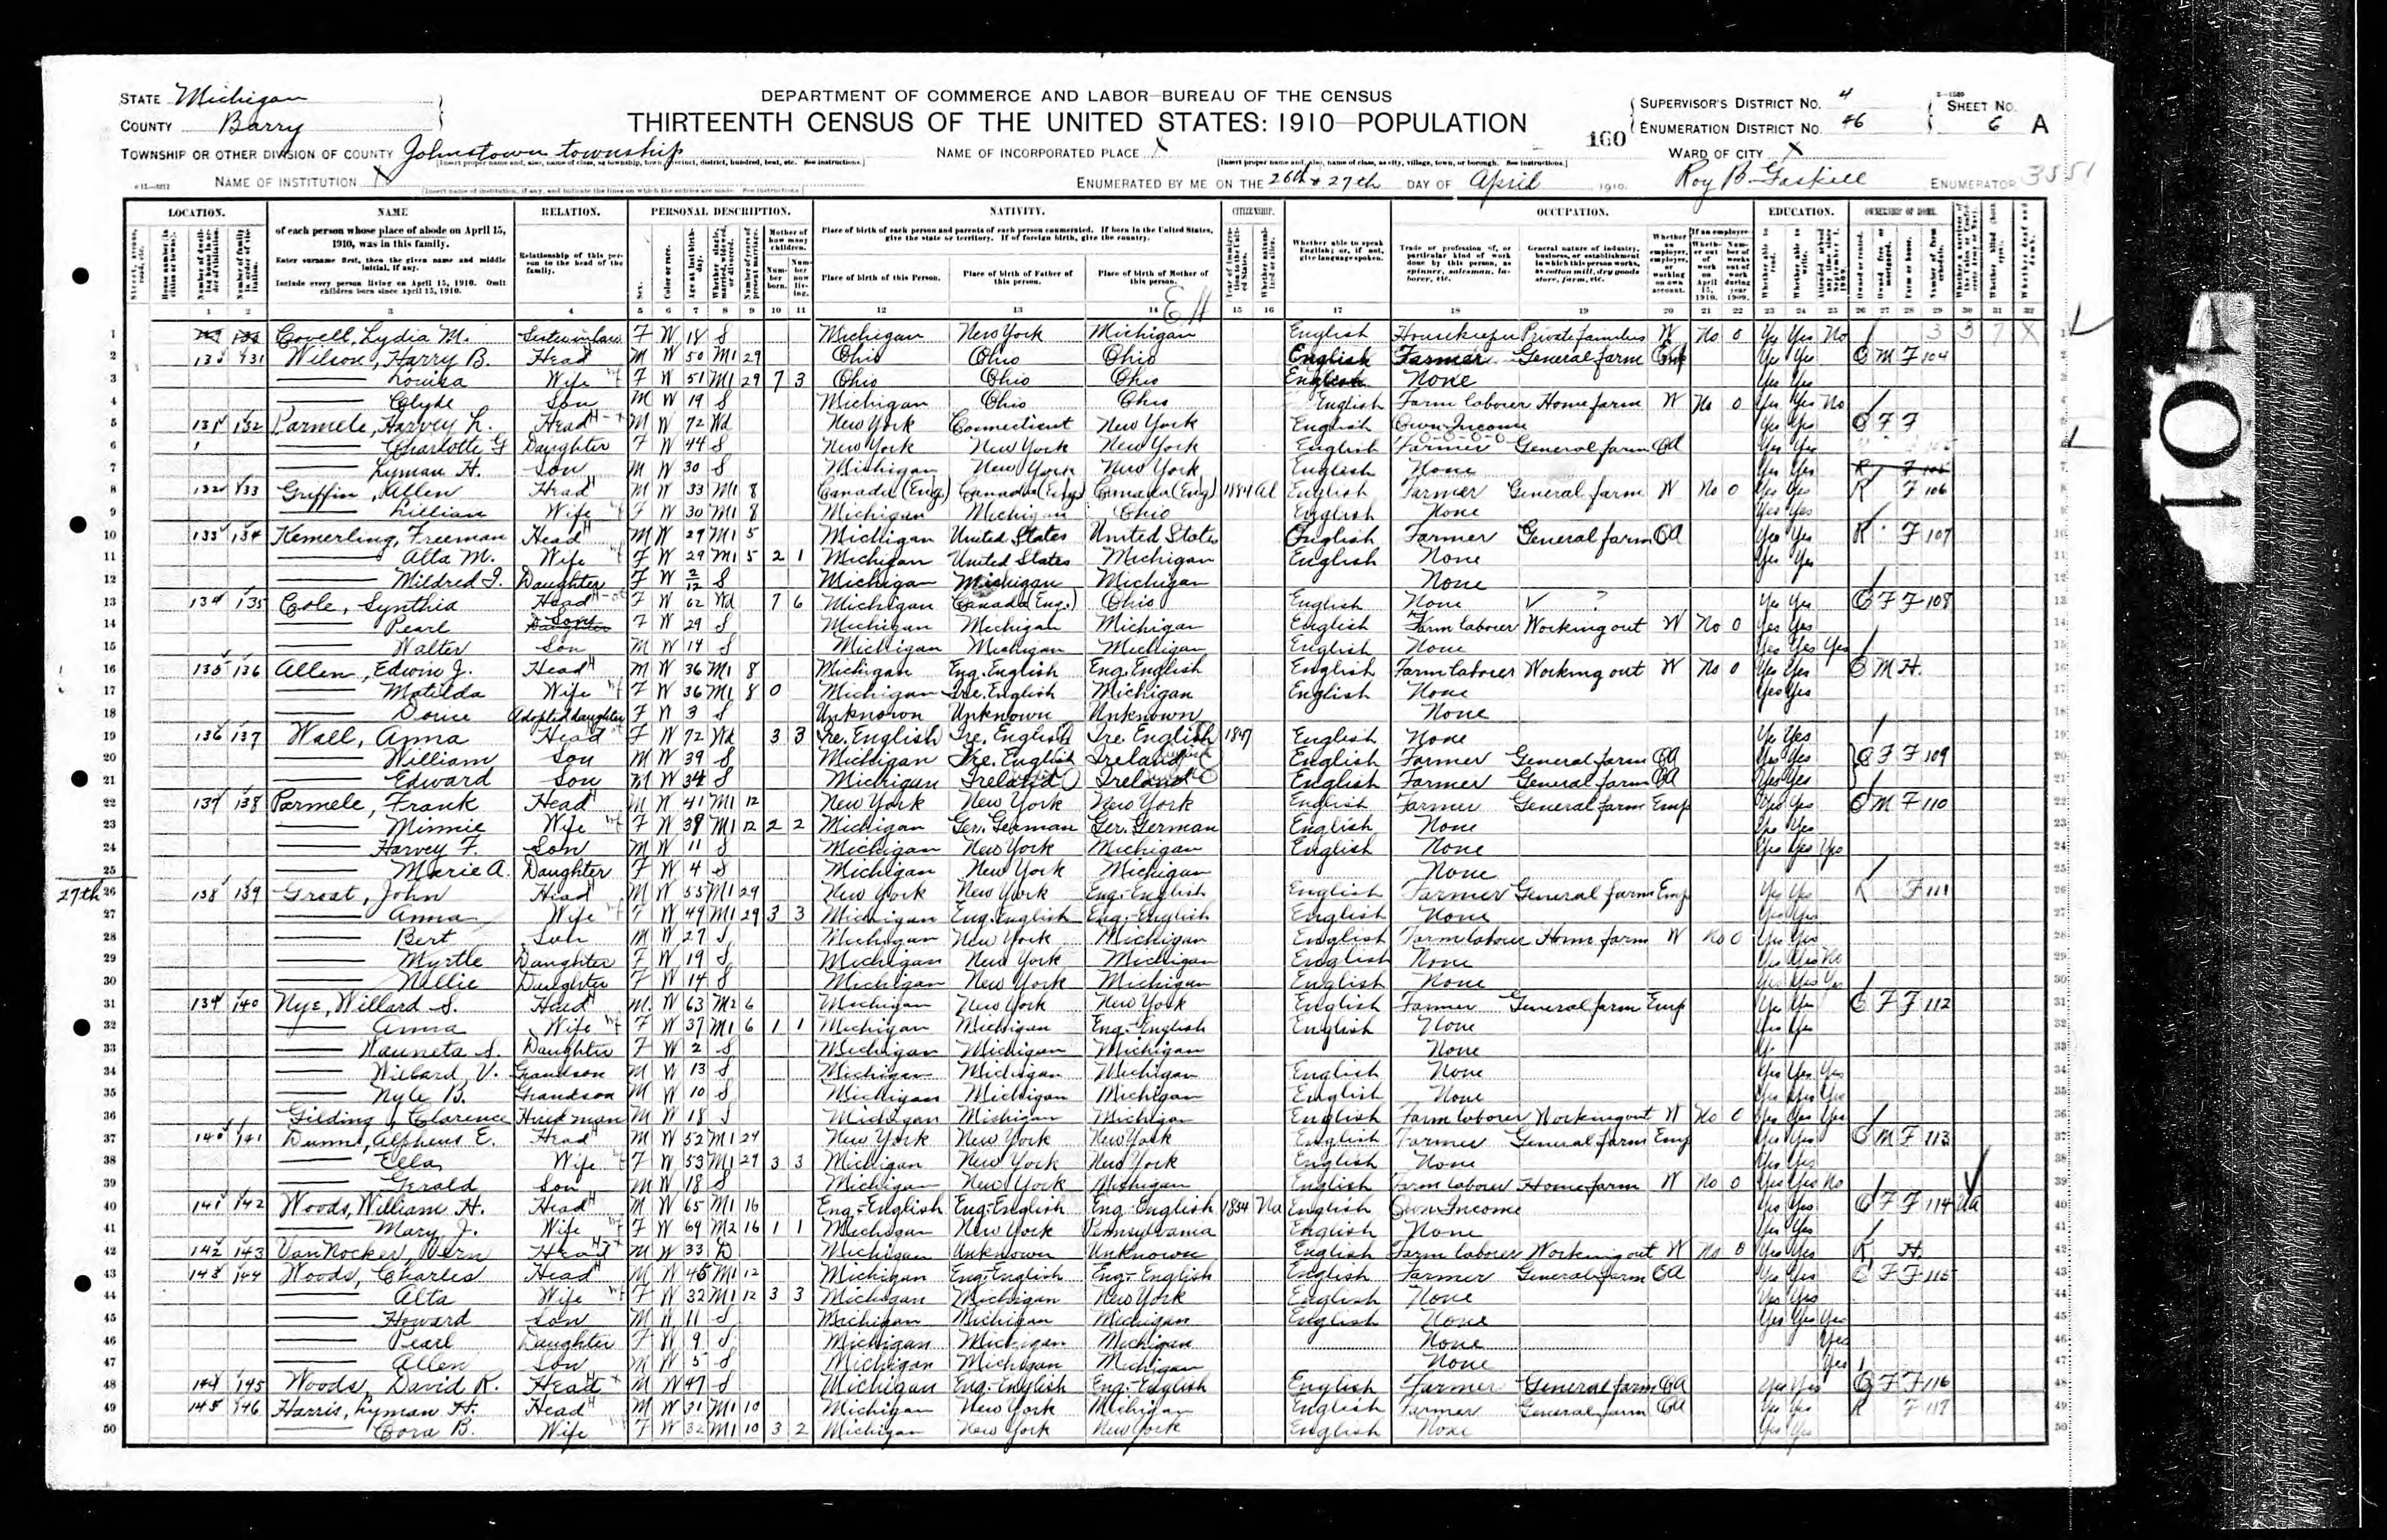 STATE Michigan
COUNTY Barry
TOWNSHIP OR OTHER DIVISION OF COUNTY Johnstown township
[Insert proper name and, also, name of class, as township, town, precinct, district, hundred, beat, etc. See instructions.]
NAME OF INSTITUTION X
[Insert name of institution, if any, and indicate the lines on which the entries are made. See instructions.]
DEPARTMENT OF COMMERCE AND LABOR—BUREAU OF THE CENSUS
THIRTEENTH CENSUS OF THE UNITED STATES: 1910—POPULATION
NAME OF INCORPORATED PLACE X
[Insert proper name and, also, name of class, as city, village, town, or borough. See instructions.]
ENUMERATED BY ME ON THE 26th & 27th DAY OF April, 1910. Roy B Gaskill ENUMERATOR 3551
160
SUPERVISOR'S DISTRICT No. 4
ENUMERATION DISTRICT No. 46
WARD OF CITY X
SHEET No. 6 A
LOCATION. NAME RELATION. PERSONAL DESCRIPTION. NATIVITY. CITIZENSHIP. OCCUPATION. EDUCATION. OWNERSHIP OF HOME.
of each person whose place of abode on April 15, 1910, was in this family.
Enter surname first, then the given name and middle initial, if any.
Include every person living on April 15, 1910. Omit children born since April 15, 1910.
Relationship of this person to the head of the family.
Place of birth of each person and parents of each person enumerated. If born in the United States, give the state or territory. If of foreign birth, give the country.
Place of birth of this Person. Place of birth of Father of this person. Place of birth of Mother of this person.
Whether able to speak English; or, if not, give language spoken.
Trade or profession of, or particular kind of work done by this person, as spinner, salesman, laborer, etc.
General nature of industry, business, or establishment in which this person works, as cotton mill, dry goods store, farm, etc.
1 2 3 4 5 6 7 8 9 10 11 12 13 14 15 16 17 18 19 20 21 22 23 24 25 26 27 28 29 30 31 32
1 Covell, Lydia M. Sister in law F W 18 S Michigan New York Michigan English Housekeeper Private families W No 0 Yes Yes No
2 131 Wilson, Harry B. Head M W 50 M1 29 Ohio Ohio Ohio English Farmer General farm Emp Yes Yes O M F 104
3 Louisa Wife F W 51 M1 29 7 3 Ohio Ohio Ohio English None Yes Yes
4 Clyde Son M W 19 S Michigan Ohio Ohio English Farm laborer Home farm W No 0 Yes Yes No
5 131 132 Parmele, Harvey L. Head M W 72 Wd New York Connecticut New York English Own Income Yes Yes O F F
6 Charlotte G Daughter F W 44 S New York New York New York English Farmer General farm OA Yes Yes
7 Lyman H. Son M W 30 S Michigan New York New York English None Yes Yes
8 132 133 Griffin, Allen Head M W 33 M1 8 Canada (Eng) Canada (Eng) Canada (Eng) 1884 Al English Farmer General farm W No 0 Yes Yes R F 106
9 Lillian Wife F W 30 M1 8 Michigan Michigan Ohio English None Yes Yes
10 133 134 Kemerling, Freeman Head M W 29 M1 5 Michigan United States United States English Farmer General farm OA Yes Yes R F 107
11 Alta M. Wife F W 29 M1 5 2 1 Michigan United States Michigan English None Yes Yes
12 Mildred I. Daughter F W 2/12 S Michigan Michigan Michigan None
13 134 135 Cole, Synthia Head F W 62 Wd 7 6 Michigan Canada (Eng.) Ohio English None Yes Yes O F F 108
14 Pearl Son F W 29 S Michigan Michigan Michigan English Farm laborer Working out W No 0 Yes Yes
15 Walter Son M W 14 S Michigan Michigan Michigan English None Yes Yes Yes
16 135 136 Allen, Edwin J. Head M W 36 M1 8 Michigan Eng. English Eng. English English Farm laborer Working out W No 0 Yes Yes O M H
17 Matilda Wife F W 36 M1 8 0 Michigan Ire. English Michigan English None Yes Yes
18 Adopted daughter F W 3 S Unknown Unknown Unknown None
19 136 137 Wall, Anna Head F W 72 Wd 3 3 Ire. English Ire. English Ire. English 1847 English None Yes Yes
20 William Son M W 39 S Michigan Ire. English Ireland English Farmer General farm OA Yes Yes O F F 109
21 Edward Son M W 34 S Michigan Ireland Ireland English Farmer General farm OA Yes Yes
22 137 138 Parmele, Frank Head M W 41 M1 12 New York New York New York English Farmer General farm Emp Yes Yes O M F 110
23 Minnie Wife F W 38 M1 12 2 2 Michigan Ger. German Ger. German English None Yes Yes
24 Harvey F. Son M W 11 S Michigan New York Michigan English None Yes Yes Yes
25 Marie A. Daughter F W 4 S Michigan New York Michigan None
27th 26 138 139 Groat, John Head M W 55 M1 29 New York New York Eng.-English English Farmer General farm Emp Yes Yes R F 111
27 Anna Wife F W 49 M1 29 3 3 Michigan Eng. English Eng.-English English None Yes Yes
28 Bert Son M W 27 S Michigan New York Michigan English Farm laborer Home farm W No 0 Yes Yes
29 Myrtle Daughter F W 19 S Michigan New York Michigan English None Yes Yes No
30 Nellie Daughter F W 14 S Michigan New York Michigan English None Yes Yes Yes
31 139 140 Nye, Willard S. Head M. W 63 M2 6 Michigan New York New York English Farmer General farm Emp Yes Yes O F F 112
32 Anna Wife F W 37 M1 6 1 1 Michigan Michigan Eng.-English English None Yes Yes
33 Wauneta S. Daughter F W 2 S Michigan Michigan Michigan None
34 Willard V. Grandson M W 13 S Michigan Michigan Michigan English None Yes Yes Yes
35 Nyle B. Grandson M W 10 S Michigan Michigan Michigan English None Yes Yes Yes
36 Gilding, Clarence Hired man M W 18 S Michigan Michigan Michigan English Farm laborer Working out W No 0 Yes Yes Yes
37 140 141 Dunn, Alpheus E. Head M W 52 M1 29 New York New York New York English Farmer General farm Emp Yes Yes O M F 113
38 Ella Wife F W 53 M1 29 3 3 Michigan New York New York English None Yes Yes
39 Gerald Son M W 18 S Michigan New York Michigan English Farm laborer Home farm W No 0 Yes Yes No
40 141 142 Woods, William H. Head M W 65 M1 16 Eng.-English Eng.-English Eng.-English 1854 Na English Own Income Yes Yes O F F 114 UA
41 Mary J. Wife F W 69 M2 16 1 1 Michigan New York Pennsylvania English None Yes Yes
42 142 143 VanNocker, Vern Head M W 33 D Michigan Unknown Unknown English Farm laborer Working out W No 0 Yes Yes R H
43 143 144 Woods, Charles Head M W 45 M1 12 Michigan Eng.-English Eng.-English English Farmer General farm OA Yes Yes O F F 115
44 Alta Wife F W 32 M1 12 3 3 Michigan Michigan New York English None Yes Yes
45 Howard Son M W 11 S Michigan Michigan Michigan English None Yes Yes Yes
46 Pearl Daughter F W 9 S Michigan Michigan Michigan None Yes
47 Allen Son M W 5 S Michigan Michigan Michigan None Yes
48 144 145 Woods, David R. Head M W 47 S Michigan Eng.-English Eng.-English English Farmer General farm OA Yes Yes O F F 116
49 145 146 Harris, Lyman H. Head M W 31 M1 10 Michigan New York Michigan English Farmer General farm OA Yes Yes R F 117
50 Cora B. Wife F W 32 M1 10 3 2 Michigan New York New York English None Yes Yes
10A